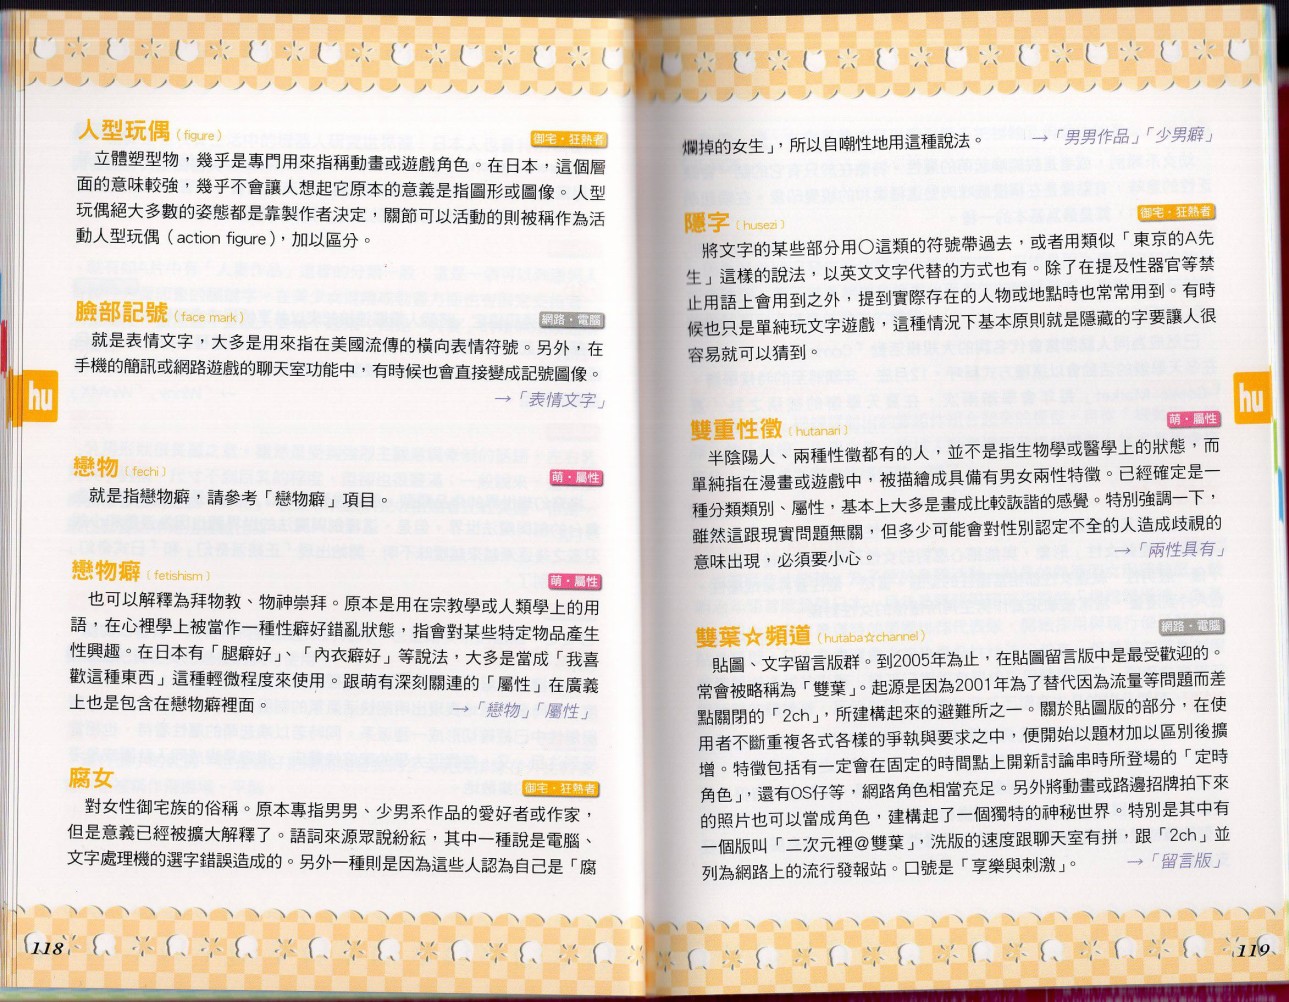 人型玩偶（figure）
御宅・狂熱者
立體塑型物，幾乎是專門用來指稱動畫或遊戲角色。在日本，這個層
面的意味較強，幾乎不會讓人想起它原本的意義是指圖形或圖像。人型
玩偶絕大多數的姿態都是靠製作者決定，關節可以活動的則被稱作為活
動人型玩偶（action figure），加以區分。
臉部記號（face mark）
網路・電腦
就是表情文字，大多是用來指在美國流傳的橫向表情符號。另外，在
手機的簡訊或網路遊戲的聊天室功能中，有時候也會直接變成記號圖像。
→「表情文字」
hu
戀物（fechi）
萌・屬性
就是指戀物癖，請參考「戀物癖」項目。
戀物癖（fetishism）
萌・屬性
也可以解釋為拜物教、物神崇拜。原本是用在宗教學或人類學上的用
語，在心裡學上被當作一種性癖好錯亂狀態，指會對某些特定物品產生
性興趣。在日本有「腿癖好」、「內衣癖好」等說法，大多是當成「我喜
歡這種東西」這種輕微程度來使用。跟萌有深刻關連的「屬性」在廣義
上也是包含在戀物癖裡面。 →「戀物」「屬性」
腐女
御宅・狂熱者
對女性御宅族的俗稱。原本專指男男、少男系作品的愛好者或作家，
但是意義已經被擴大解釋了。語詞來源眾說紛紜，其中一種說是電腦、
文字處理機的選字錯誤造成的。另外一種則是因為這些人認為自己是「腐
118
爛掉的女生」，所以自嘲性地用這種說法。 →「男男作品」「少男癖」
隱字（husezi）
御宅・狂熱者
將文字的某些部分用〇這類的符號帶過去，或者用類似「東京的A先
生」這樣的說法，以英文文字代替的方式也有。除了在提及性器官等禁
止用語上會用到之外，提到實際存在的人物或地點時也常常用到。有時
候也只是單純玩文字遊戲，這種情況下基本原則就是隱藏的字要讓人很
容易就可以猜到。
hu
雙重性徵（hutanari）
萌・屬性
半陰陽人、兩種性徵都有的人，並不是指生物學或醫學上的狀態，而
單純指在漫畫或遊戲中，被描繪成具備有男女兩性特徵。已經確定是一
種分類類別、屬性，基本上大多是畫成比較詼諧的感覺。特別強調一下，
雖然這跟現實問題無關，但多少可能會對性別認定不全的人造成歧視的
意味出現，必須要小心。 →「兩性具有」
雙葉☆頻道（hutaba☆channel）
網路・電腦
貼圖、文字留言版群。到2005年為止，在貼圖留言版中是最受歡迎的。
常會被略稱為「雙葉」。起源是因為2001年為了替代因為流量等問題而差
點關閉的「2ch」，所建構起來的避難所之一。關於貼圖版的部分，在使
用者不斷重複各式各樣的爭執與要求之中，便開始以題材加以區別後擴
增。特徵包括有一定會在固定的時間點上開新討論串時所登場的「定時
角色」，還有OS仔等，網路角色相當充足。另外將動畫或路邊招牌拍下來
的照片也可以當成角色，建構起了一個獨特的神秘世界。特別是其中有
一個版叫「二次元裡@雙葉」，洗版的速度跟聊天室有拼，跟「2ch」並
列為網路上的流行發報站。口號是「享樂與刺激」。 →「留言版」
119